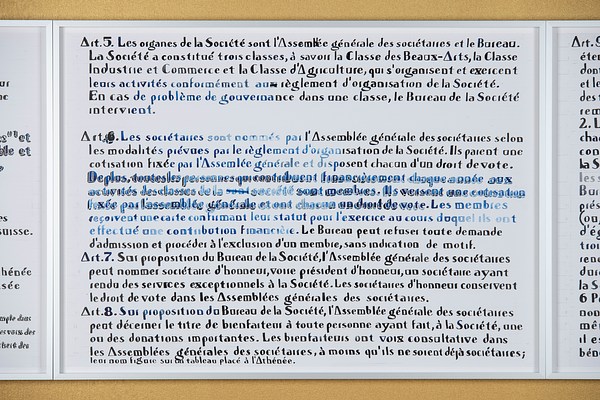 Art.5. Les organes de la Société sont l'Assemblée générale des sociétaires et le Bureau.
La Société a constitué trois classes, à savoir la Classe des Beaux-Arts, la Classe
Industrie et Commerce et la Classe d'Agriculture, qui s'organisent et exercent
leurs activités conformément au règlement d'organisation de la Société.
En cas de problème de gouvernance dans une classe, le Bureau de la Société
intervient.
Art.6. Les sociétaires sont nommés par l'Assemblée générale des sociétaires selon
les modalités prévues par le règlement d'organisation de la Société. Ils paient une
cotisation fixée par l'Assemblée générale et disposent chacun d'un droit de vote.
De plus, toutes les personnes qui contribuent financièrement chaque année aux
activités des classes de la société sont membres. Ils versent une cotisation
fixée par l'assemblée générale et ont chacun un droit de vote. Les membres
reçoivent une carte confirmant leur statut pour l'exercice au cours duquel ils ont
effectué une contribution financière. Le Bureau peut refuser toute demande
d'admission et procéder à l'exclusion d'un membre, sans indication de motif.
Art.7. Sur proposition du Bureau de la Société, l'Assemblée générale des sociétaires
peut nommer sociétaire d'honneur, voire président d'honneur, un sociétaire ayant
rendu des services exceptionnels à la Société. Les sociétaires d'honneur conservent
le droit de vote dans les Assemblées générales des sociétaires.
Art.8. Sur proposition du Bureau de la Société, l'Assemblée générale des sociétaires
peut décerner le titre de bienfaiteur à toute personne ayant fait, à la Société, une
ou des donations importantes. Les bienfaiteurs ont voix consultative dans
les Assemblées générales des sociétaires, à moins qu'ils ne soient déjà sociétaires;
leur nom figure sur un tableau placé à l'Athénée.